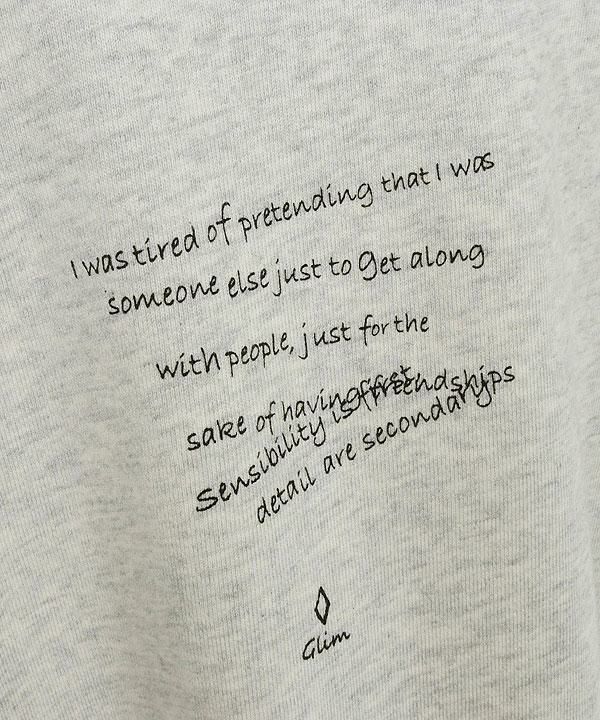 I was tired of pretending that I was
someone else just to get along
with people, just for the
sake of having friendships
Sensibility is first,
detail are secondary
Glim